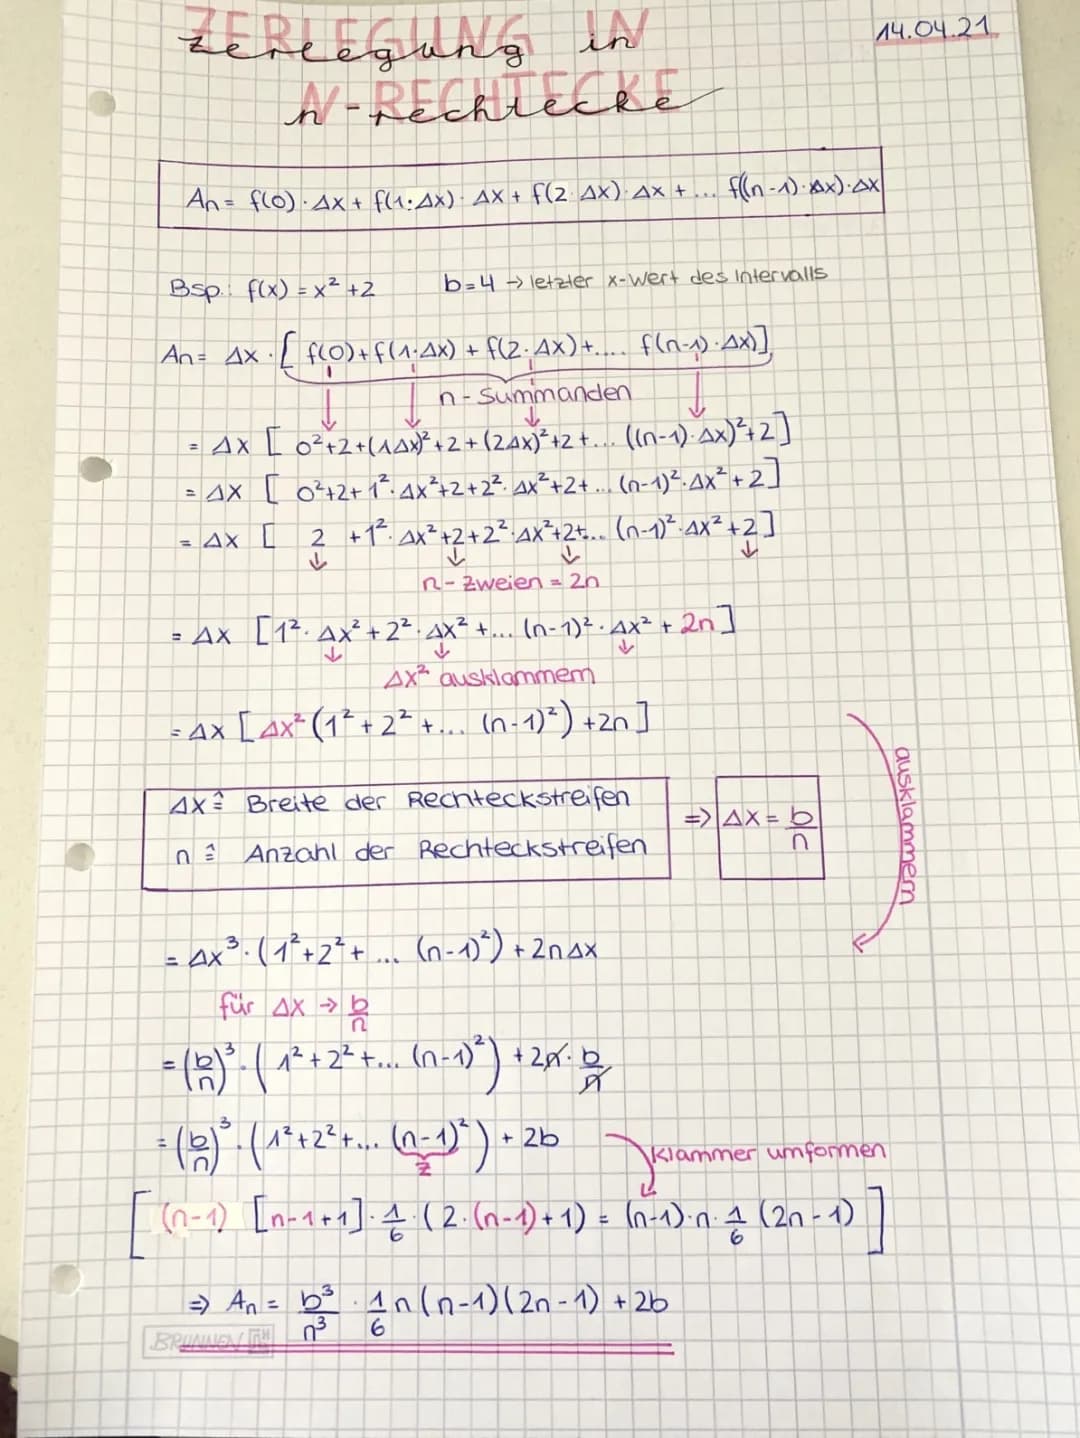 ZERLEGUNG IN
14.04.21
N-RECHTECKE
An = f(0)·Δx + f(1·Δx)·Δx + f(2·Δx)·Δx + ... f((n-1)·Δx)·Δx
Bsp.: f(x) = x² + 2 b=4 → letzter x-Wert des Intervalls
An = Δx · [ f(0) + f(1·Δx) + f(2·Δx) + .... f(n-1)·Δx)]
n-Summanden
= Δx [ 0²+2+(1Δx)²+2+(2Δx)²+2+... ((n-1)·Δx)²+2]
= Δx [ 0²+2+1²·Δx²+2+2²·Δx²+2+... (n-1)²·Δx²+2]
= Δx [ 2 +1²·Δx²+2+2²·Δx²+2+... (n-1)²·Δx²+2]
n-Zweien = 2n
= Δx [1²·Δx²+2²·Δx²+... (n-1)²·Δx² + 2n]
Δx² ausklammern
= Δx [Δx² (1²+2²+... (n-1)²) +2n]
ausklammern
Δx ≙ Breite der Rechteckstreifen
n ≙ Anzahl der Rechteckstreifen
⇒ Δx = b/n
= Δx³·(1²+2²+ ... (n-1)²) + 2nΔx
für Δx → b/n
= (b/n)³·(1²+2²+... (n-1)²) + 2n·b/n
= (b/n)³·(1²+2²+... (n-1)²) + 2b
z
Klammer umformen
[(n-1) [n-1+1]·1/6·(2·(n-1)+1) = (n-1)·n·1/6 (2n-1)]
⇒ An = b³/n³ · 1/6 n(n-1)(2n-1) + 2b
BRUNNEN